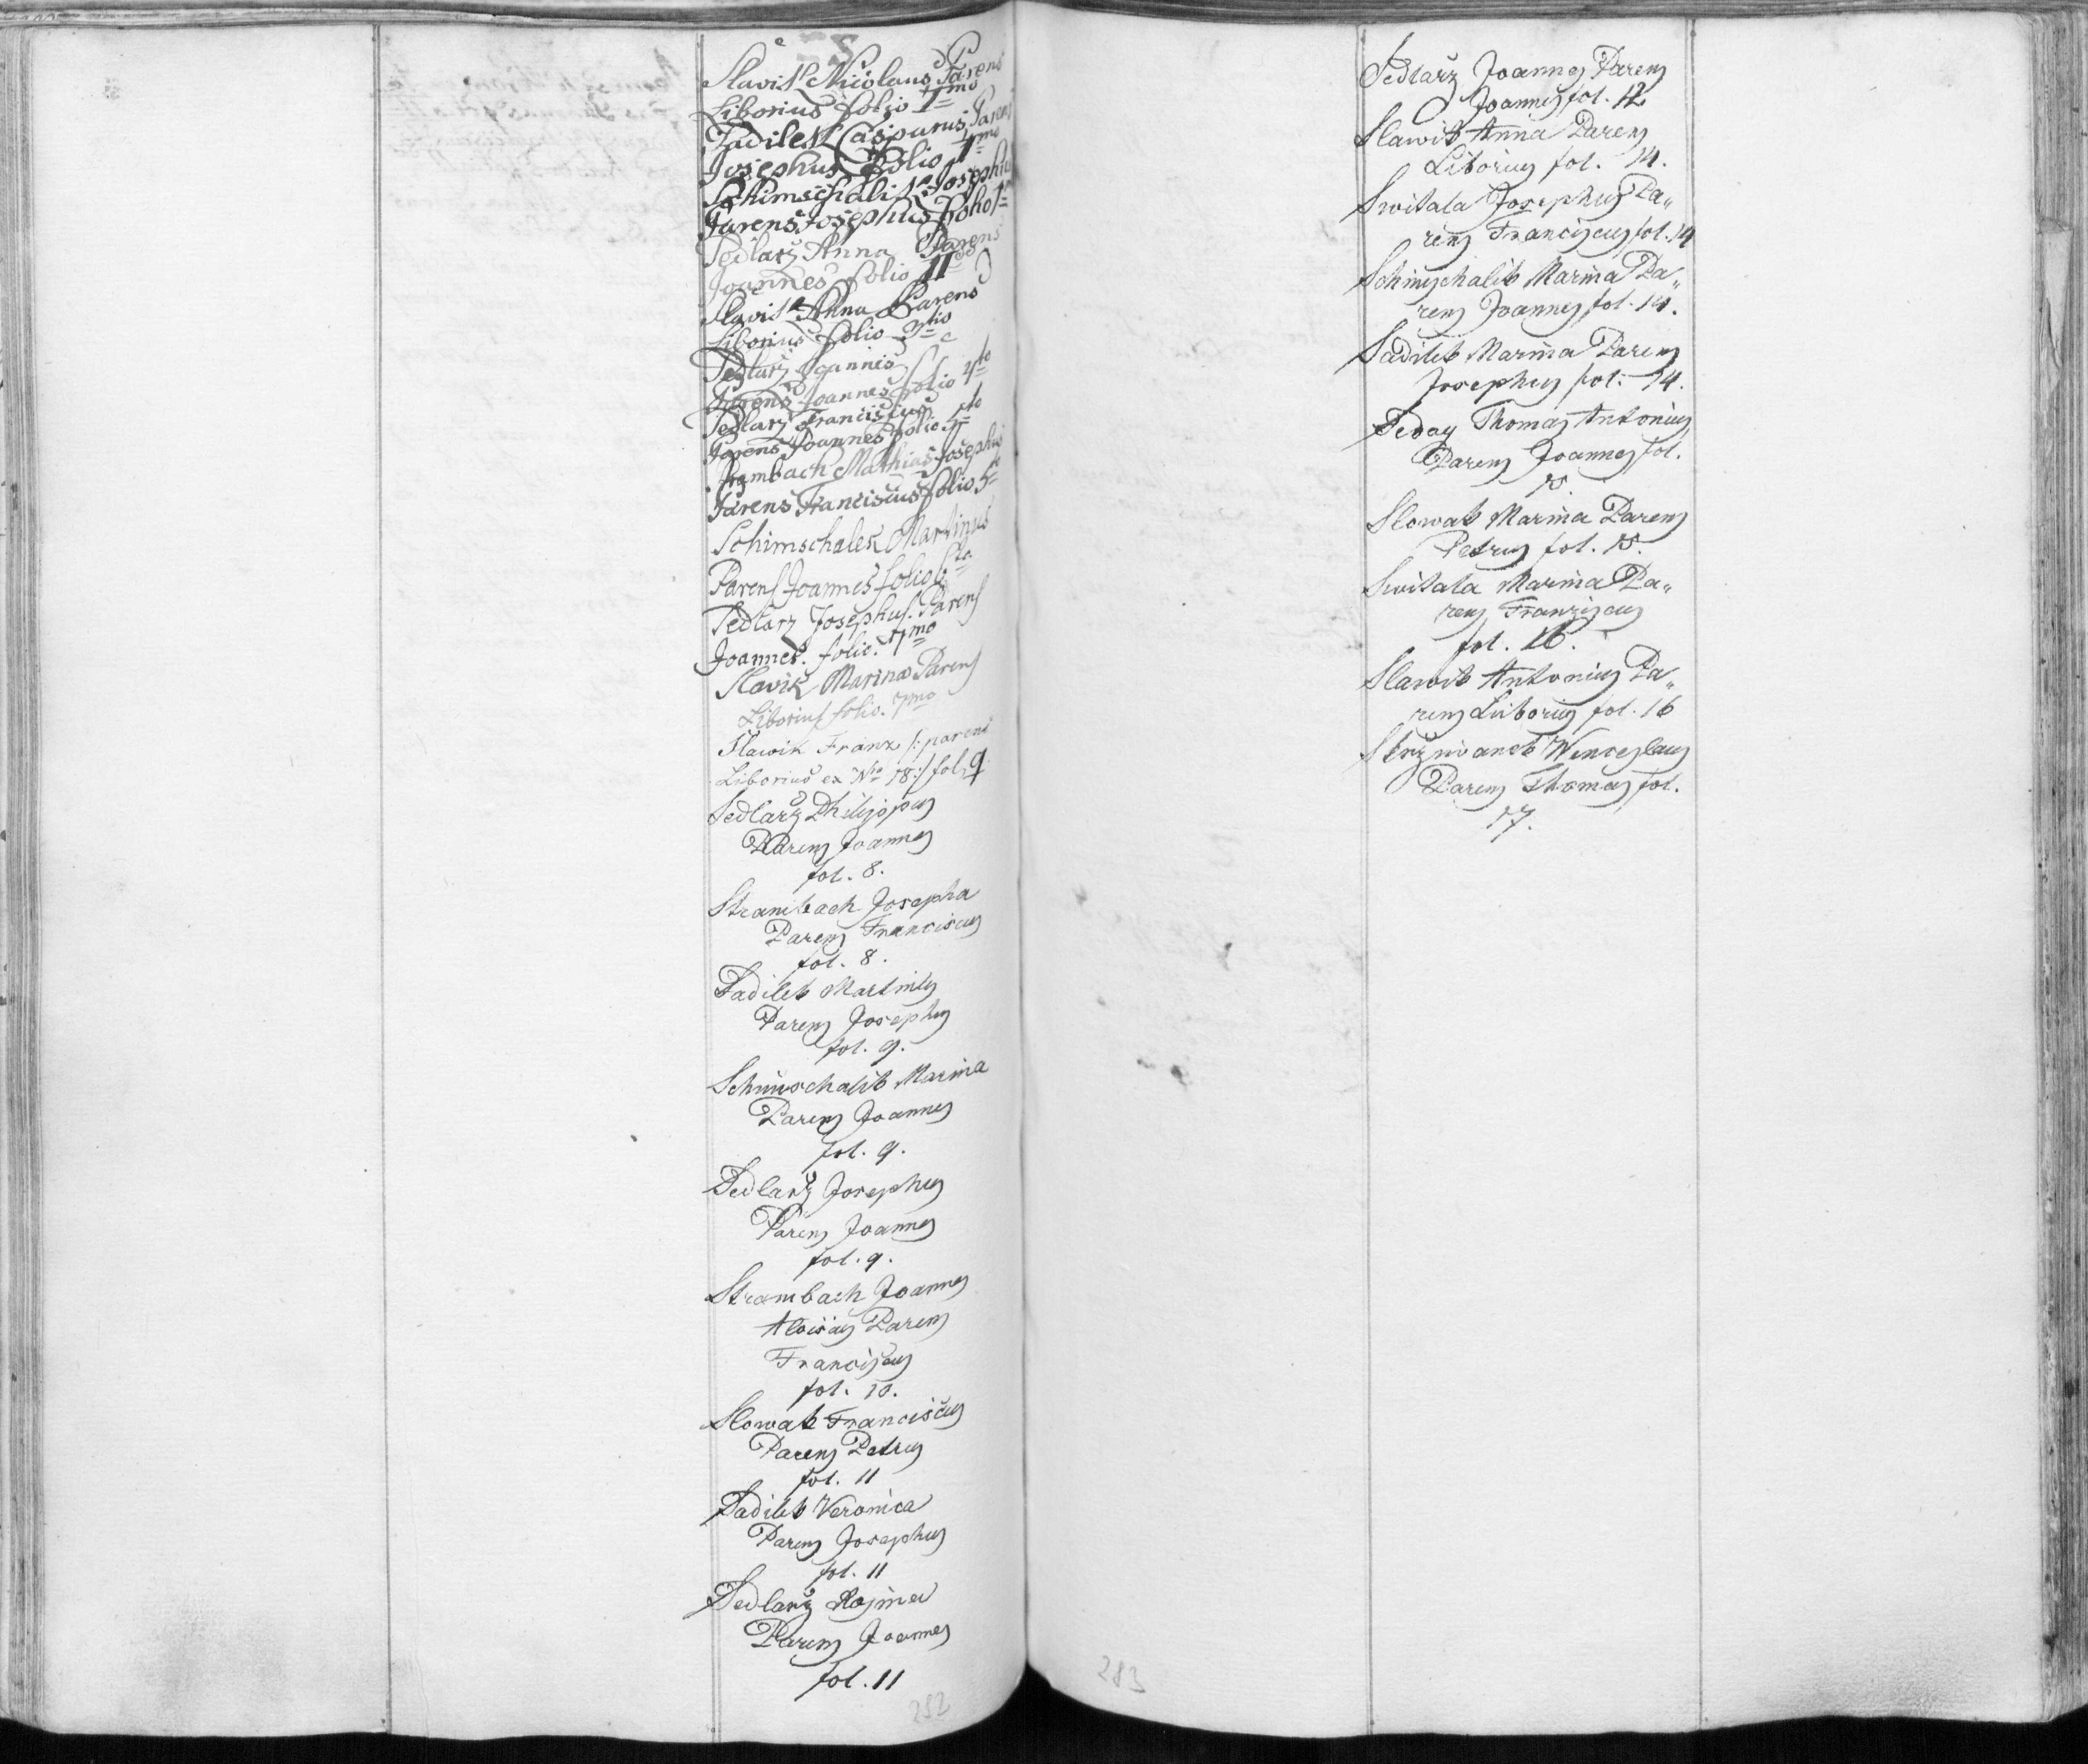 S
Slavik Nicolaus Parens
Liborius folio 1mo
Sadilek Casparus Parens
Josephus Folio 1mo
Schimschalik Josephus
Parens Josephus folio 1mo
Sedlarz Anna Parens
Joannes folio 11do
Slavik Anna Parens
Liborius folio 3tio
Sedlarz Joannes
Parens Joannes folio 4to
Sedlarz Franciscus
Parens Joannes folio 5to
Strambach Mathias Josephus
Parens Franciscus folio 5to
Schimschalek Martinus
Parens Joannes folio 6to
Sedlarz Josephus. Parens
Joannes. folio. 7mo
Slavik Marina Parens
Liborius folio. 7mo
Slawik Franz /: parens
Liborius ex Nro 18:/ fol. 9
Sedlarz Philippus
Parens Joannes
fol. 8.
Strambach Josepha
Parens Franciscus
fol. 8.
Sadilek Martinus
Parens Josephus
fol. 9.
Schimschalik Marina
Parens Joannes
fol. 9.
Sedlarz Josephus
Parens Joannes
fol. 9.
Strambach Joannes
Aloisius Parens
Franciscus
fol. 10.
Slowak Franciscus
Parens Petrus
fol. 11
Sadilek Veronica
Parens Josephus
fol. 11
Sedlarz Rosina
Parens Joannes
fol. 11
282
Sedlarz Joannes Parens
Joannes fol. 12
Slawik Anna Parens
Liborius fol. 14.
Switala Josephus Pa„
rens Franciscus fol. 14
Schimschalik Marina Pa„
rens Joannes fol. 14.
Sadilek Marina Parens
Josephus fol. 14.
Thomas Antonius
Parens Joannes fol.
15.
Slowak Marina Parens
Petrus fol. 15.
Switala Marina Pa„
rens Franziscus
fol. 16.
Slawik Antonius Pa„
rens Liborius fol. 16
Wenceslaus
Parens Thomas fol.
17.
283